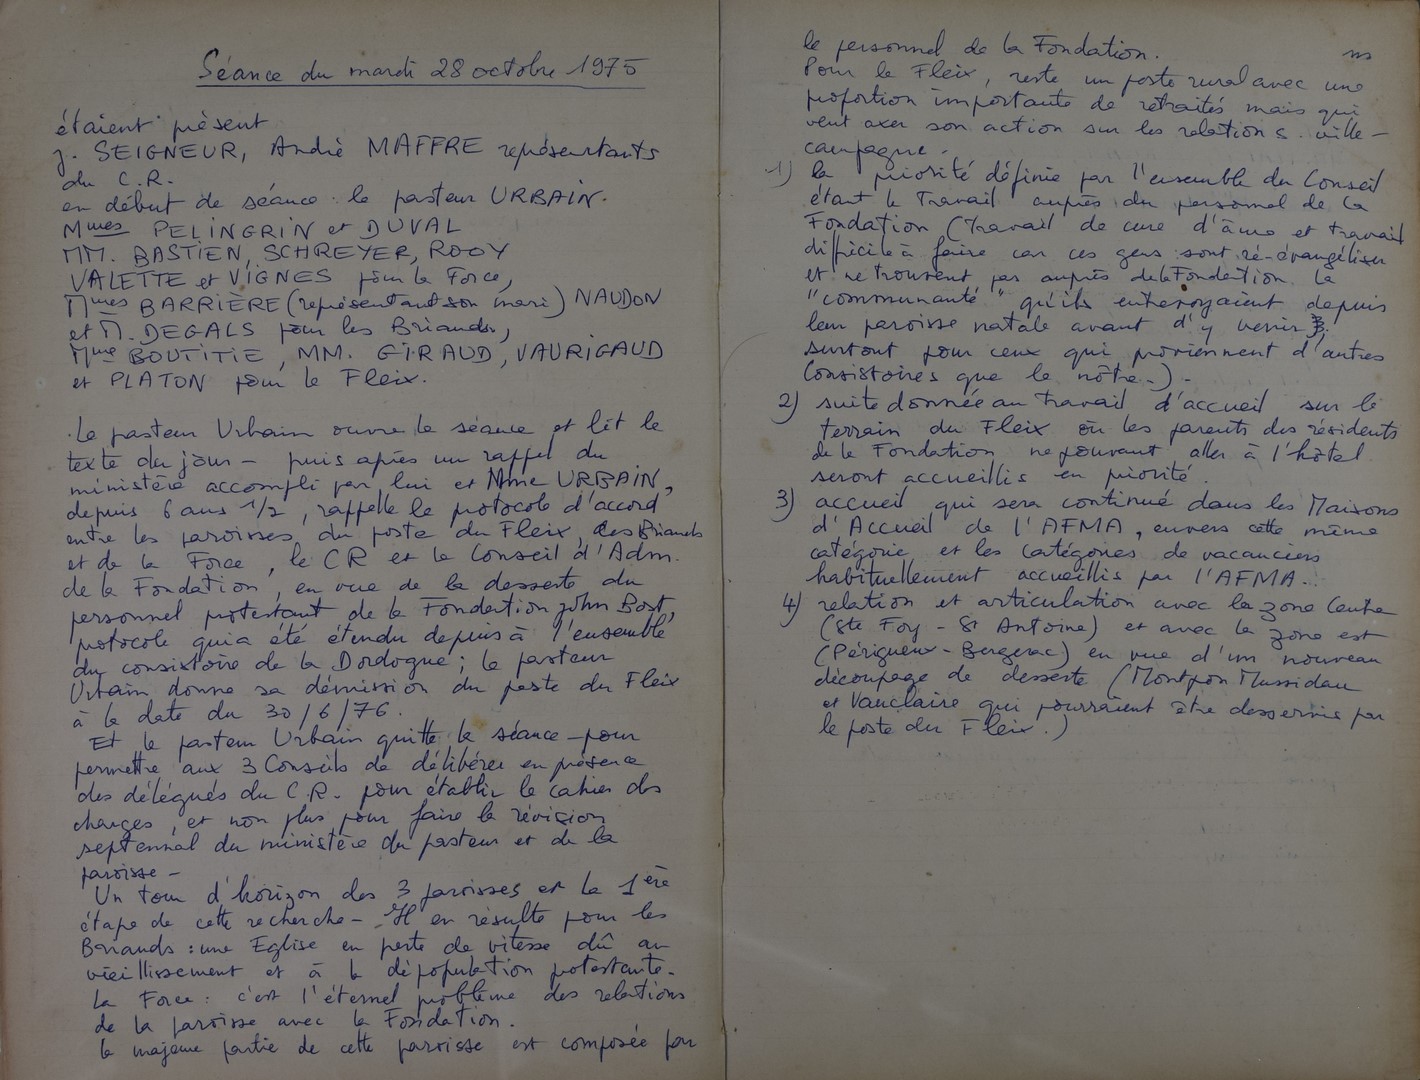 Séance du mardi 28 octobre 1975
étaient présent
J. SEIGNEUR, André MAFFRE représentants
du C.R.
en début de séance : le pasteur URBAIN.
Mmes PELINGRIN et DUVAL
MM. BASTIEN, SCHREYER, ROOY
VALETTE et VIGNES pour la Force,
Mmes BARRIÈRE (représentant son mari) NAUDON
et M. DEGALS pour les Briands,
Mme BOUTITIE, MM. GIRAUD, VAURIGAUD
et PLATON pour le Fleix.
Le pasteur Urbain ouvre la séance et lit le
texte du jour - puis après un rappel du
ministère accompli par lui et Mme URBAIN,
depuis 6 ans 1/2, rappelle le protocole d'accord
entre les paroisses du poste du Fleix, des Briands
et de la Force, le CR et le Conseil d'Adm.
de la Fondation, en vue de la desserte du
personnel protestant de la Fondation John Bost,
protocole qui a été étendu depuis à l'ensemble
du consistoire de la Dordogne ; le pasteur
Urbain donne sa démission du poste du Fleix
à la date du 30/6/76.
Et le pasteur Urbain quitte la séance - pour
permettre aux 3 Conseils de délibérer en présence
des délégués du C.R. pour établir le cahier des
charges, et non plus pour faire la révision
septennal du ministère du pasteur et de la
paroisse -
Un tour d'horizon des 3 paroisses est la 1ère
étape de cette recherche - Il en résulte pour les
Briands : une Eglise en perte de vitesse dû au
vieillissement et à la dépopulation protestante.
La Force : c'est l'éternel problème des relations
de la paroisse avec la Fondation.
la majeure partie de cette paroisse est composée par
le personnel de la Fondation.
Pour le Fleix, reste un poste rural avec une
proportion importante de retraités mais qui
veut axer son action sur les relations ville -
campagne.
1) la priorité définie par l'ensemble du Conseil
étant le Travail auprès du personnel de la
Fondation (Travail de cure d'âme et travail
difficile à faire car ces gens sont ré-évangéliser
et ne trouvent pas auprès de la Fondation la
"communauté" qu'ils entrevoyaient depuis
leur paroisse natale avant d'y venir
surtout pour ceux qui proviennent d'autres
Consistoires que le nôtre.).
2) suite donnée au travail d'accueil sur le
terrain du Fleix où les parents des résidents
de la Fondation ne pouvant aller à l'hôtel
seront accueillis en priorité.
3) accueil qui sera continué dans les Maisons
d'Accueil de l'AFMA, envers cette même
catégorie, et les catégories de vacanciers
habituellement accueillis par l'AFMA.
4) relation et articulation avec la zone Centre
(Ste Foy - St Antoine) et avec la zone est
(Périgueux - Bergerac) en vue d'un nouveau
découpage de desserte (Montpon Mussidan
et Vauclaire qui pourraient être desservis par
le poste du Fleix.)